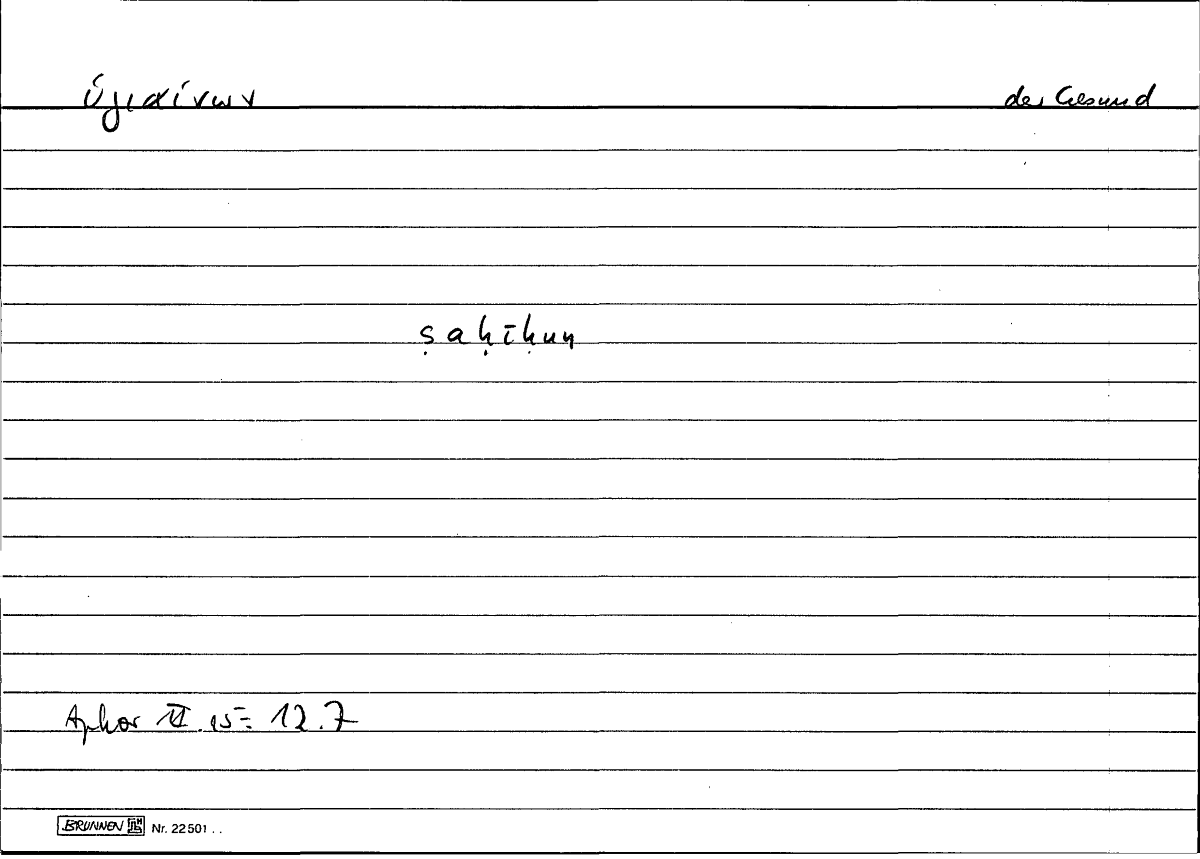 ὑγιαίνων der Gesund
ṣaḥīḥun
Aphor VI.15 = 12.7
BRUNNEN Nr. 22501 . .